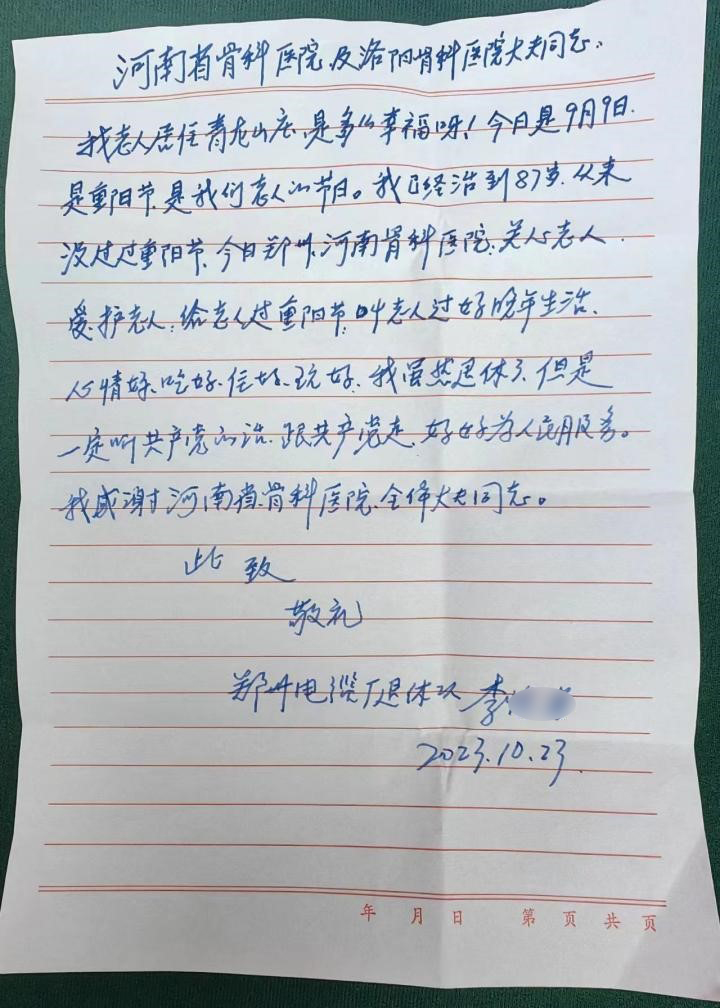 河南省骨科医院及洛阳骨科医院大夫同志:
我老人居住青龙山庄,是多么幸福呀!今日是9月9日.
是重阳节,是我们老人的节日。我已经活到87岁.从来
没过过重阳节,今日郑州,河南骨科医院,关心老人.
爱护老人,给老人过重阳节,叫老人过好晚年生活、
心情好、吃好、住好、玩好.我虽然退休了.但是
一定听共产党的话.跟共产党走.好好为人民服务。
我感谢河南省骨科医院、全体大夫同志。
此致
敬礼
郑州电缆厂退休 李
2023.10.23.
年 月 日 第 页 共 页